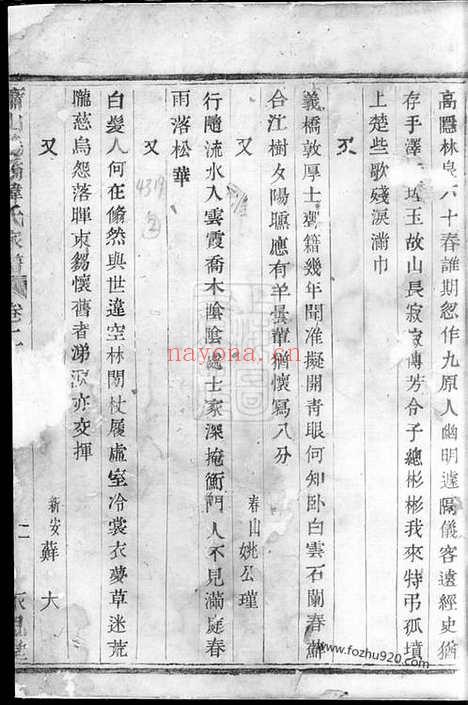 高隱林泉六十春誰期忽作九原人幽明遽隔儀客遠經史猶
存手澤 埋玉故山長寂寂傳芳令子總彬彬我來特弔孤墳
上楚些歌殘淚滿巾
又
義橋敦厚士舊籍幾年聞准擬開青眼何知卧白雲石蘭春
台江樹夕陽曛應有羊曇輩猶懷寫八分
春山姚公瑾
又
行隨流水入雲霞喬木陰陰處士家深掩衡門人不見滿庭春
雨落松華
又
白髮人何在翛然與世違空林閒杖履虛室冷裳衣夢草迷荒
隴慈烏怨落暉束芻懷舊者涕淚亦交揮
新安蘇大
又
4319
蕭山 橋韓氏家譜 卷十
二
navona.cn
www.fozhu920.com